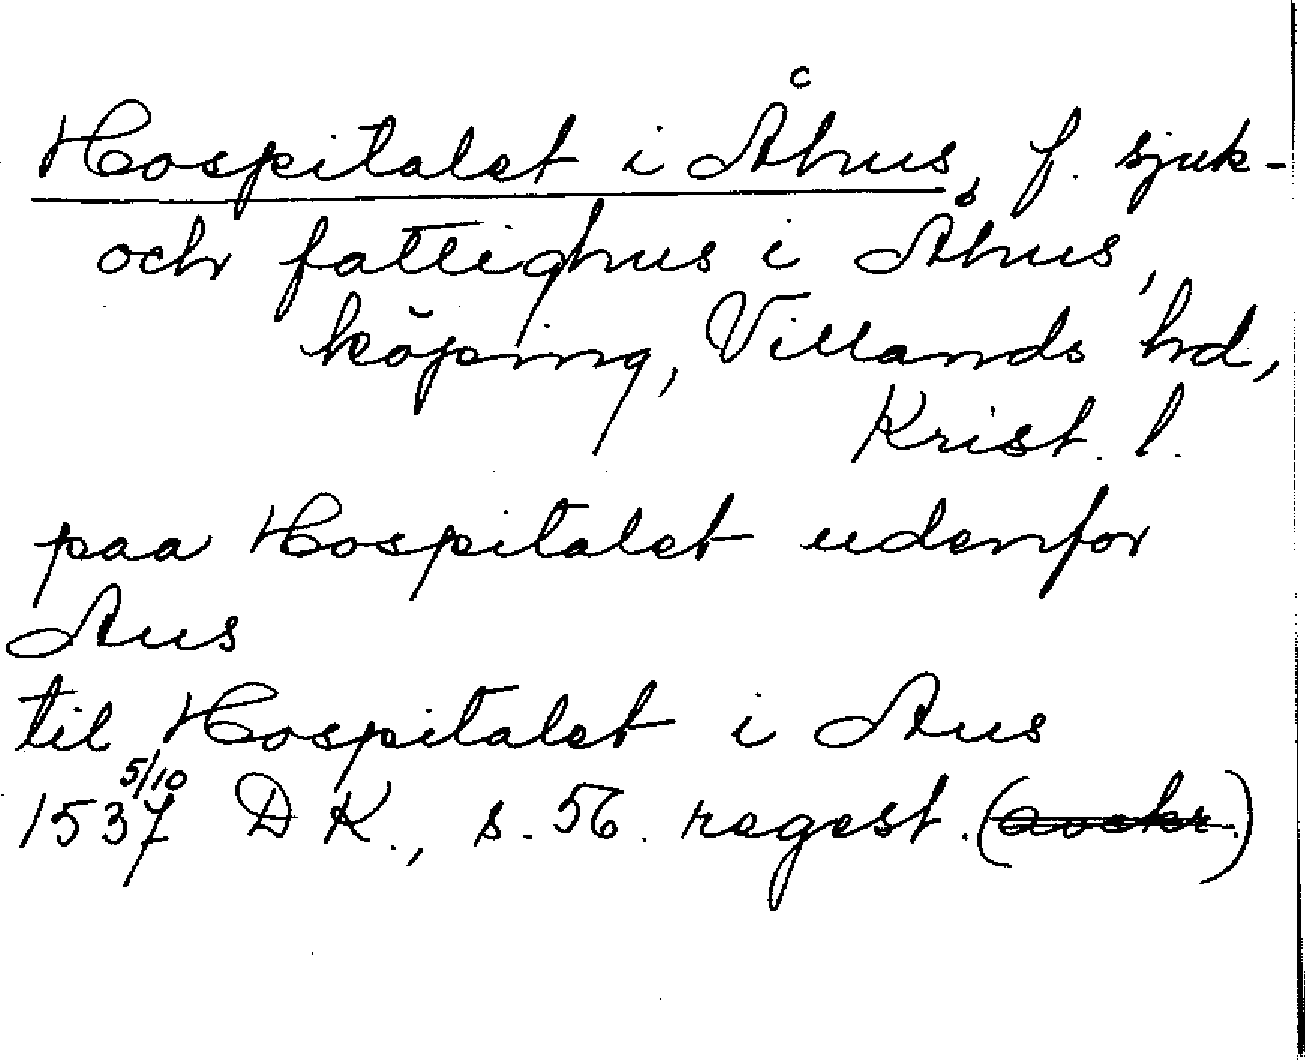 c
Hospitalet i Åhus, f. sjuk-
och fattighus i Åhus,
köping, Villands hd,
Krist. l.
paa Hospitalet udenfor
Aus
til Hospitalet i Aus
5/10
1537 DK., s. 56. regest. (avskr.)